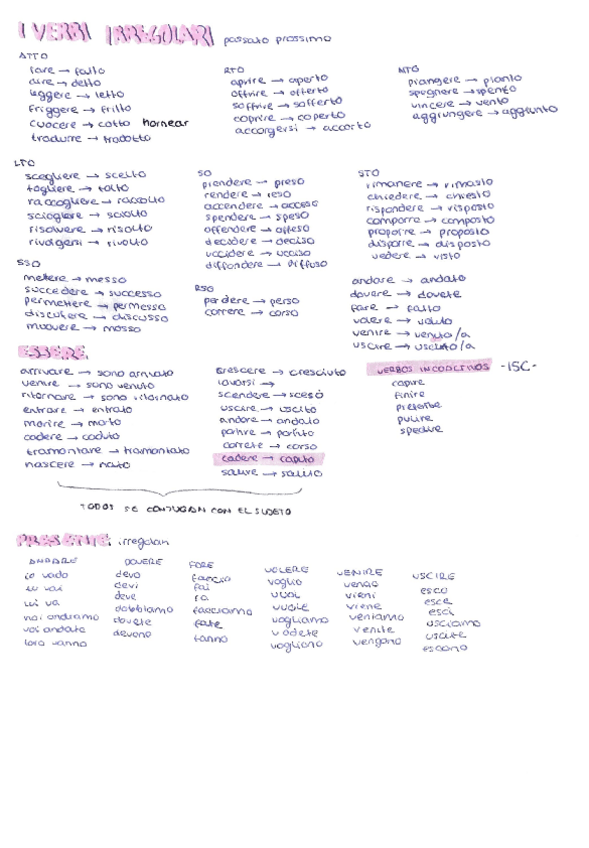 I VERBI IRREGOLARI passato prossimo
ATTO
fare → fatto
dire → detto
leggere → letto
friggere → fritto
cuocere → cotto hornear
tradurre → tradotto
RTO
aprire → aperto
offrire → offerto
soffrire → sofferto
coprire → coperto
accorgersi → accorto
NTO
piangere → pianto
spegnere → spento
vincere → vento
aggiungere → aggiunto
LTO
scegliere → scelto
togliere → tolto
raccogliere → raccolto
sciogliere → sciolto
risolvere → risolto
rivolgersi → rivolto
SO
prendere → preso
rendere → reso
accendere → acceso
spendere → speso
offendere → offeso
decidere → deciso
uccidere → ucciso
diffondere → diffuso
STO
rimanere → rimasto
chiedere → chiesto
rispondere → risposto
comporre → composto
proporre → proposto
disporre → disposto
vedere → visto
SSO
mettere → messo
succedere → successo
permettere → permesso
discutere → discusso
muovere → mosso
RSO
perdere → perso
correre → corso
andare → andato
dovere → dovete
fare → fatto
volere → voluto
venire → venuto/a
uscire → uscito/a
ESSERE
arrivare → sono arrivato
venire → sono venuto
ritornare → sono ritornato
entrare → entrato
morire → morto
cadere → caduto
tramontare → tramontato
nascere → nato
crescere → cresciuto
lavarsi →
scendere → sceso
uscire → uscito
andare → andato
partire → partito
correre → corso
cadere → caputo
salire → salito
VERBOS INCOACTIVOS -ISC-
capire
finire
preferire
pulire
spedire
TODOS SE CONJUGAN CON EL SUJETO
PRESENTE irregolari
ANDARE
io vado
tu vai
lui va
noi andiamo
voi andate
loro vanno
DOVERE
devo
devi
deve
dobbiamo
dovete
devono
FARE
faccio
fai
fa
facciamo
fate
fanno
VOLERE
voglio
vuoi
vuole
vogliamo
vogliono
VENIRE
vengo
vieni
viene
veniamo
venite
vengono
USCIRE
esco
esce
esci
usciamo
uscite
escono